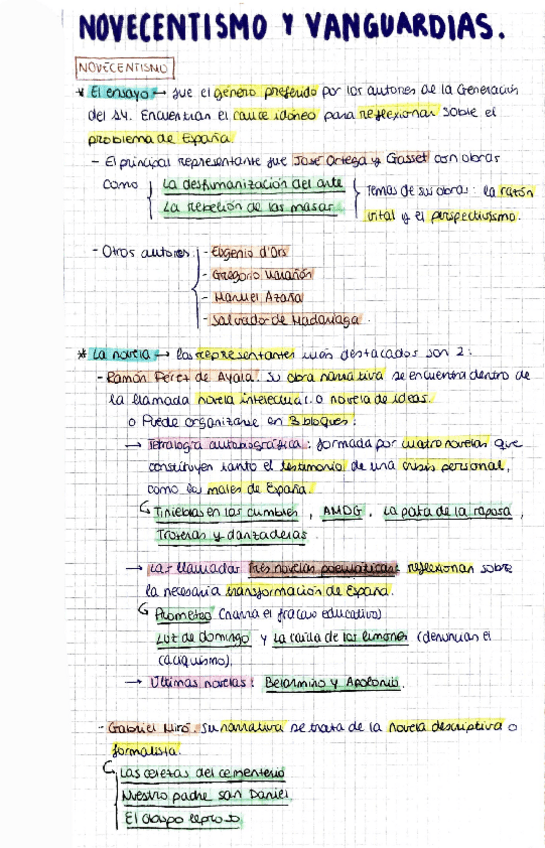 NOVECENTISMO Y VANGUARDIAS.
NOVECENTISMO
* El ensayo → fue el género preferido por los autores de la Generación
del 14. Encuentran el cauce idóneo para reflexionar sobre el
problema de España.
- El principal representante fue José Ortega y Gasset con obras
como { La deshumanización del arte } Temas de sus obras: la razón
La rebelión de las masas vital y el perspectivismo.
- Otros autores - Eugenio d'Ors
- Gregorio Marañón
- Manuel Azaña
- Salvador de Madariaga.
* La novela → los representantes más destacados son 2:
- Ramón Pérez de Ayala. Su obra narrativa se encuentra dentro de
la llamada novela intelectual o novela de ideas.
o Puede organizarse en 3 bloques:
→ Tetralogía autobiográfica: formada por cuatro novelas que
constituyen tanto el testimonio de una crisis personal,
como los males de España.
Tinieblas en las cumbres, AMDG, La pata de la raposa,
Troteras y danzaderas.
→ Las llamadas tres novelas poemáticas: reflexionan sobre
la necesaria transformación de España.
Prometeo (narra el fracaso educativo)
Luz de domingo y La caída de los limones (denuncian el
caciquismo).
→ Ultimas novelas: Belarmino y Apolonio.
- Gabriel Miró. Su narrativa se trata de la novela descriptiva o
formalista.
Las cerezas del cementerio
Nuestro padre san Daniel
El obispo leproso